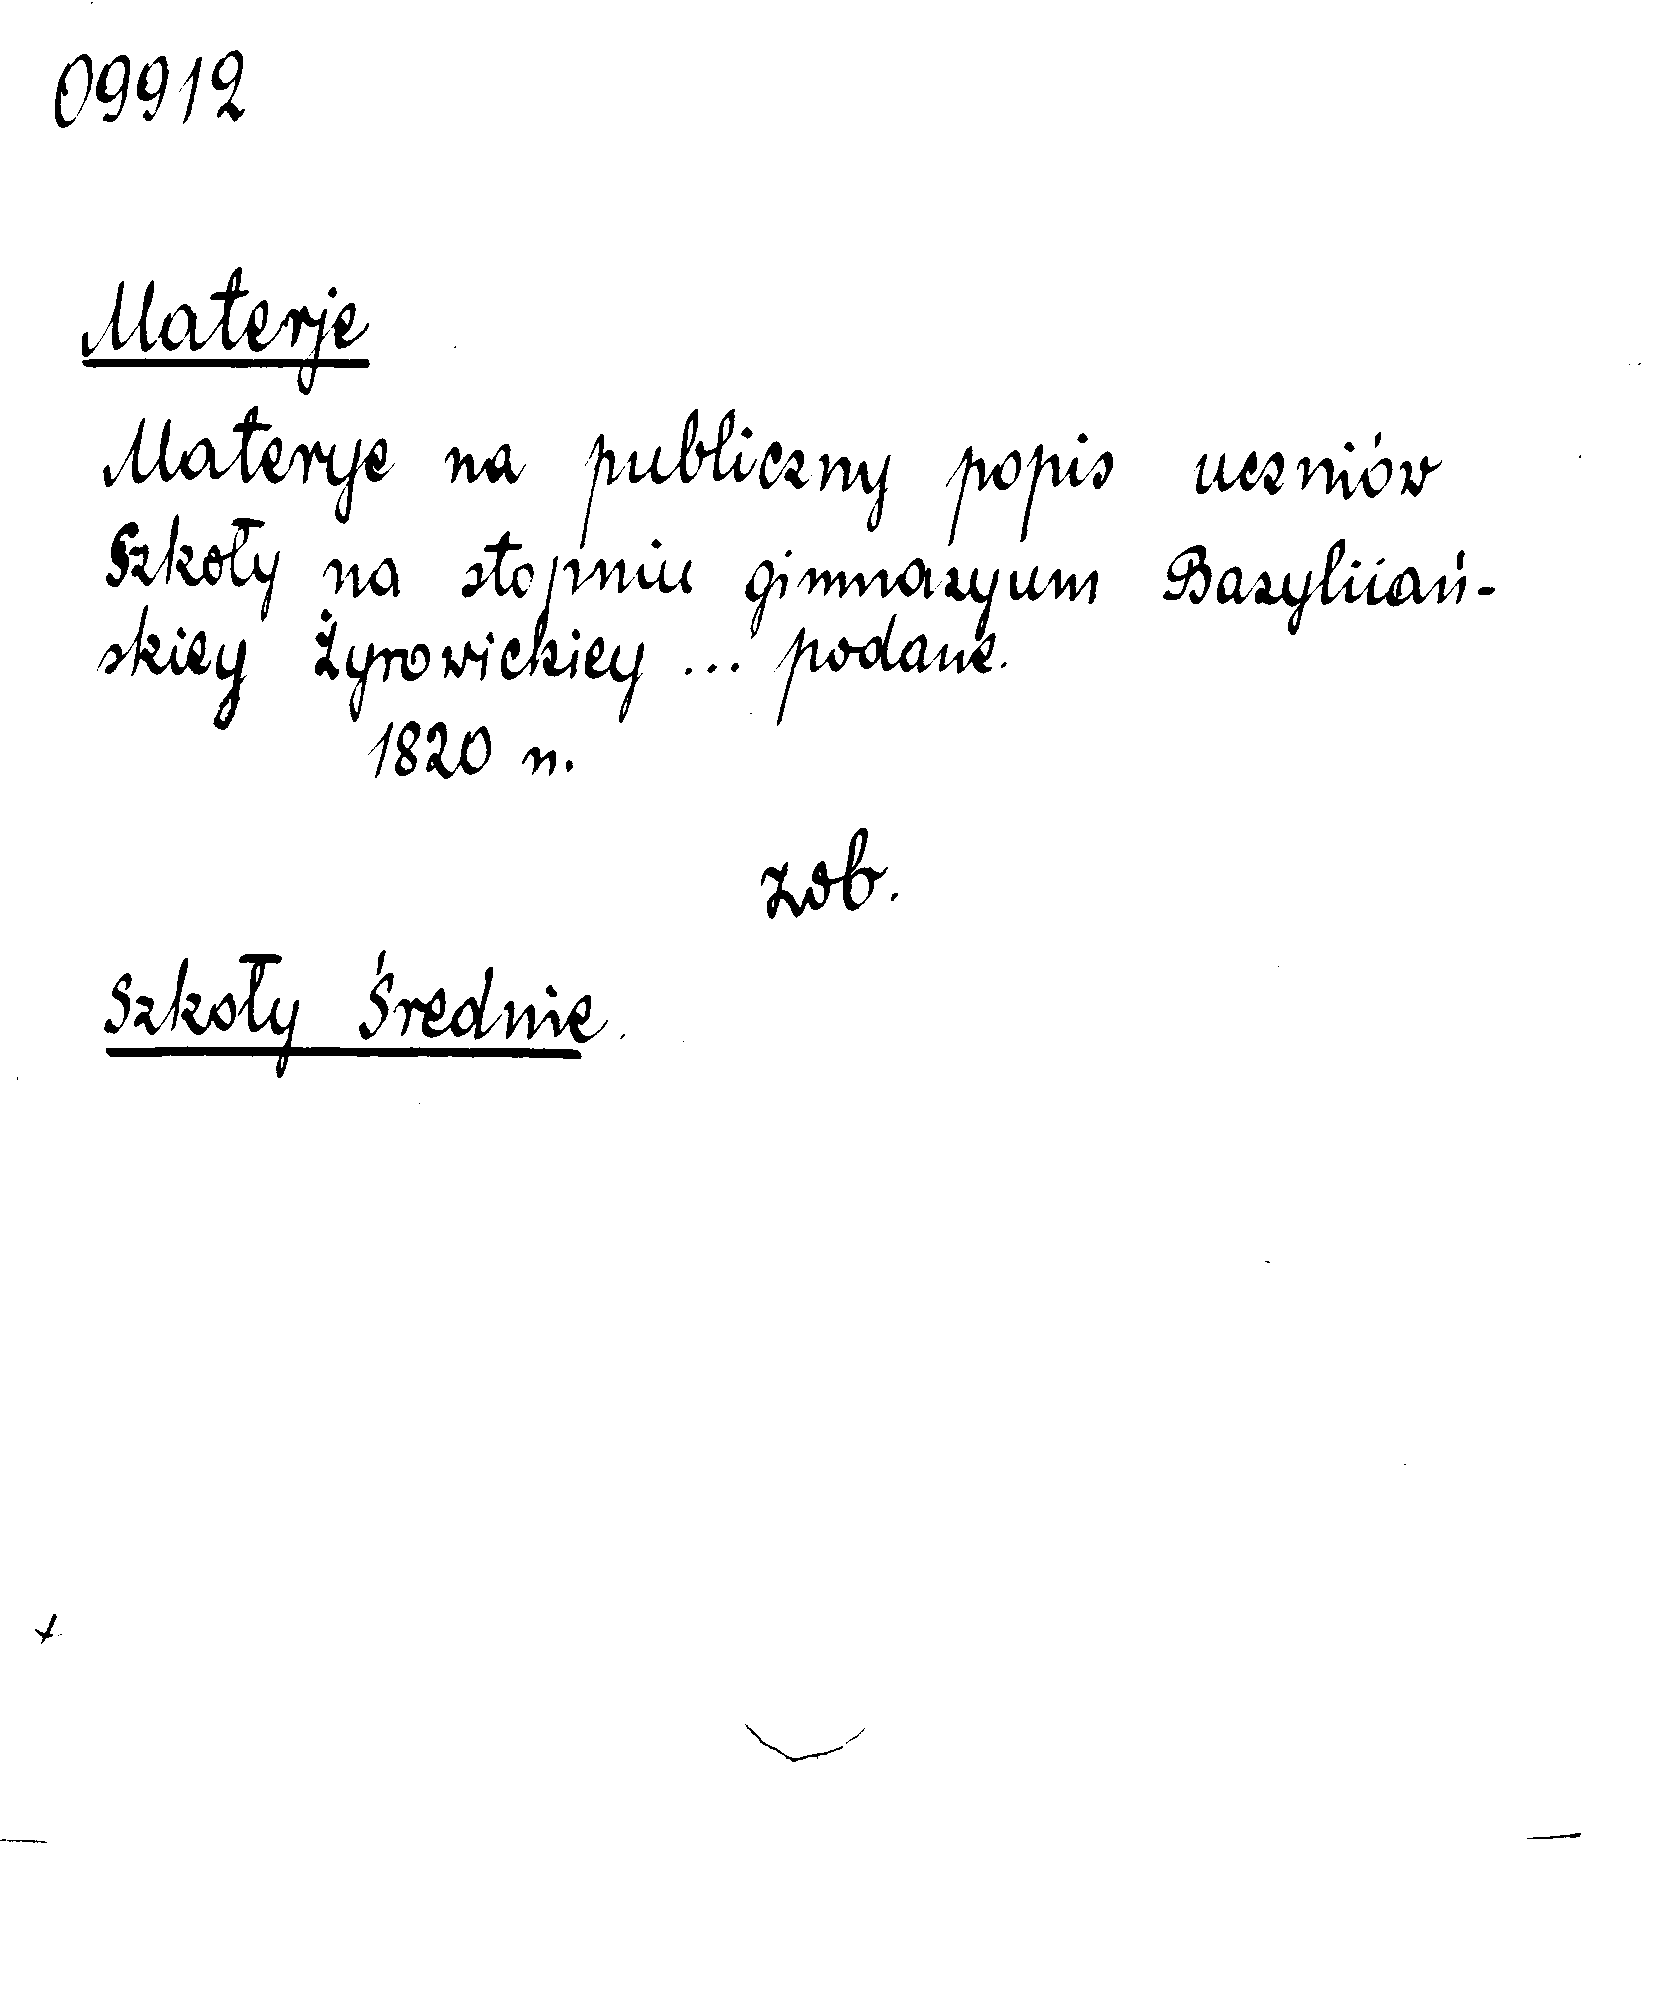 09912
Materje
Materye na publiczny popis uczniów
Szkoły na stopniu gimnazyum Bazyliiań-
skiey Żyrowickiey ... podane.
1820 n.
zob.
Szkoły Średnie.